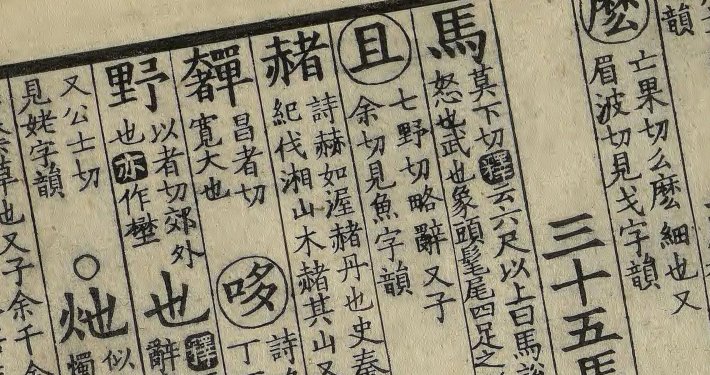 韻
麽
亡果切么麽細也又
眉波切見戈字韻
三十五馬
馬
莫下切釋云六尺以上曰馬說
怒也武也象頭髦尾四足之
且
七野切略辭又子
余切見魚字韻
赭
詩赫如渥赭丹也史秦
紀伐湘山木赭其山又
奲
昌者切
寬大也
哆
詩
丁
野
以者切郊外
也亦作壄
也
釋
辭
又公士切
見姥字韻
○灺
似
燭
草也又子余千余